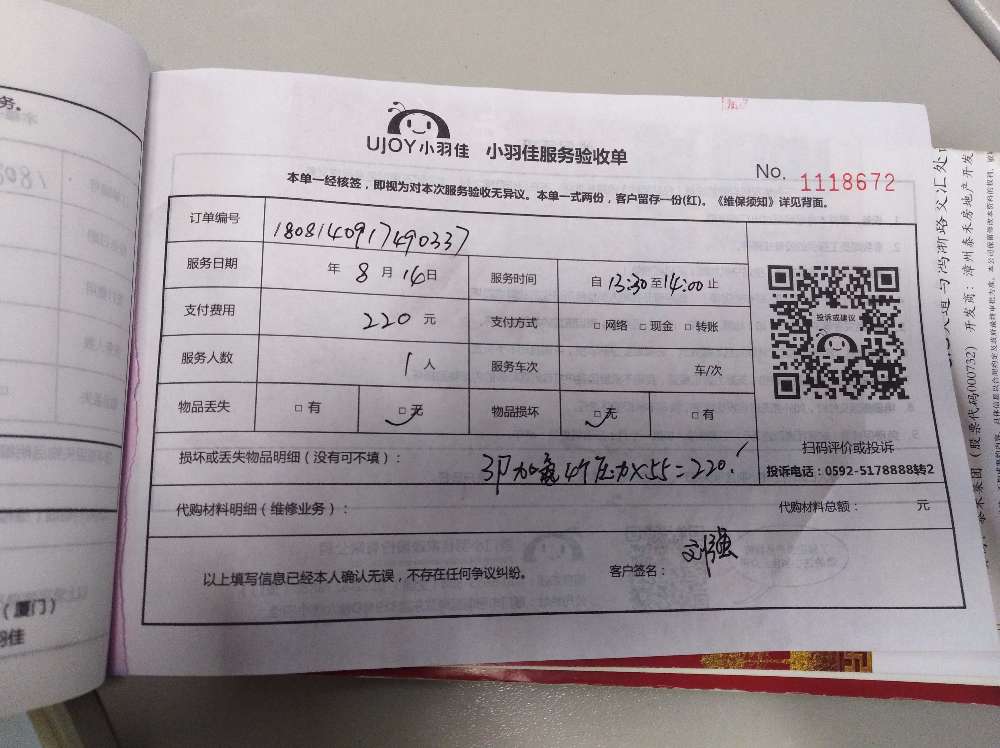 务。
UJOY小羽佳 小羽佳服务验收单
No. 1118672
本单一经核签，即视为对本次服务验收无异议。本单一式两份，客户留存一份(红)。《维保须知》详见背面。
订单编号 180814091749033​7
服务日期 年 8 月 14 日 服务时间 自 13:30 至 14:00 止
支付费用 220 元 支付方式 □ 网络 □ 现金 □ 转账
服务人数 1 人 服务车次 车/次
物品丢失 □ 有 □ 无 物品损坏 □ 无 □ 有
投诉或建议
扫码评价或投诉
投诉电话：0592-5178888转2
损坏或丢失物品明细（没有可不填）： 3P加氟4个压力×55=220.
代购材料明细（维修业务）： 代购材料总额： 元
以上填写信息已经本人确认无误，不存在任何争议纠纷。 客户签名： 刘强
（厦门）
羽佳
大道与鸿浙路交汇处
集团（股票代码000732）开发商：漳州泰禾房地产开发